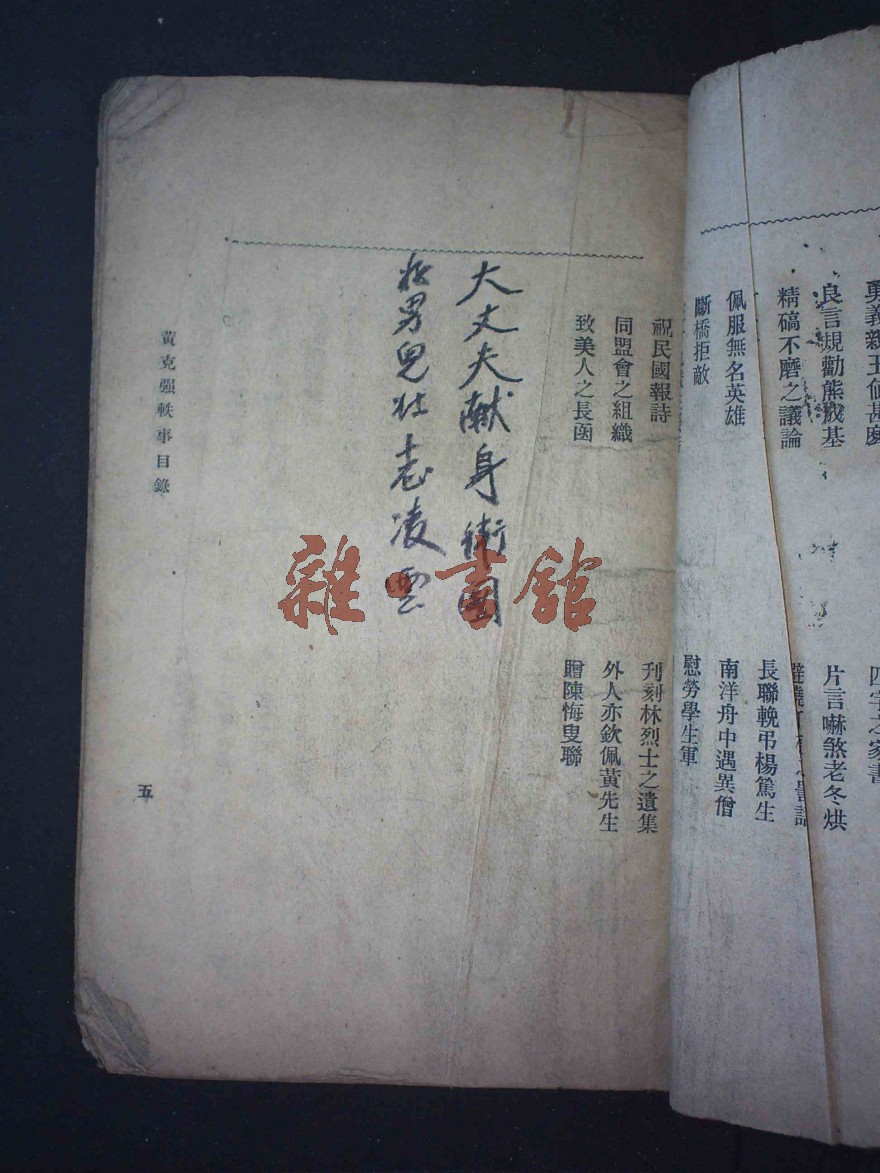 勇義親王値甚麽
良言規勸熊成基
片言嚇煞老冬烘
精碻不磨之議論
長聯輓弔楊篤生
佩服無名英雄
南洋舟中遇異僧
斷橋拒敵
慰勞學生軍
祝民國報詩
刊刻林烈士之遺集
同盟會之組織
外人亦欽佩黃先生
致美人之長函
贈陳悔叟聯
大丈夫献身衛国
好男兒壯志凌雲
黃克强軼事目錄
五
雜書館